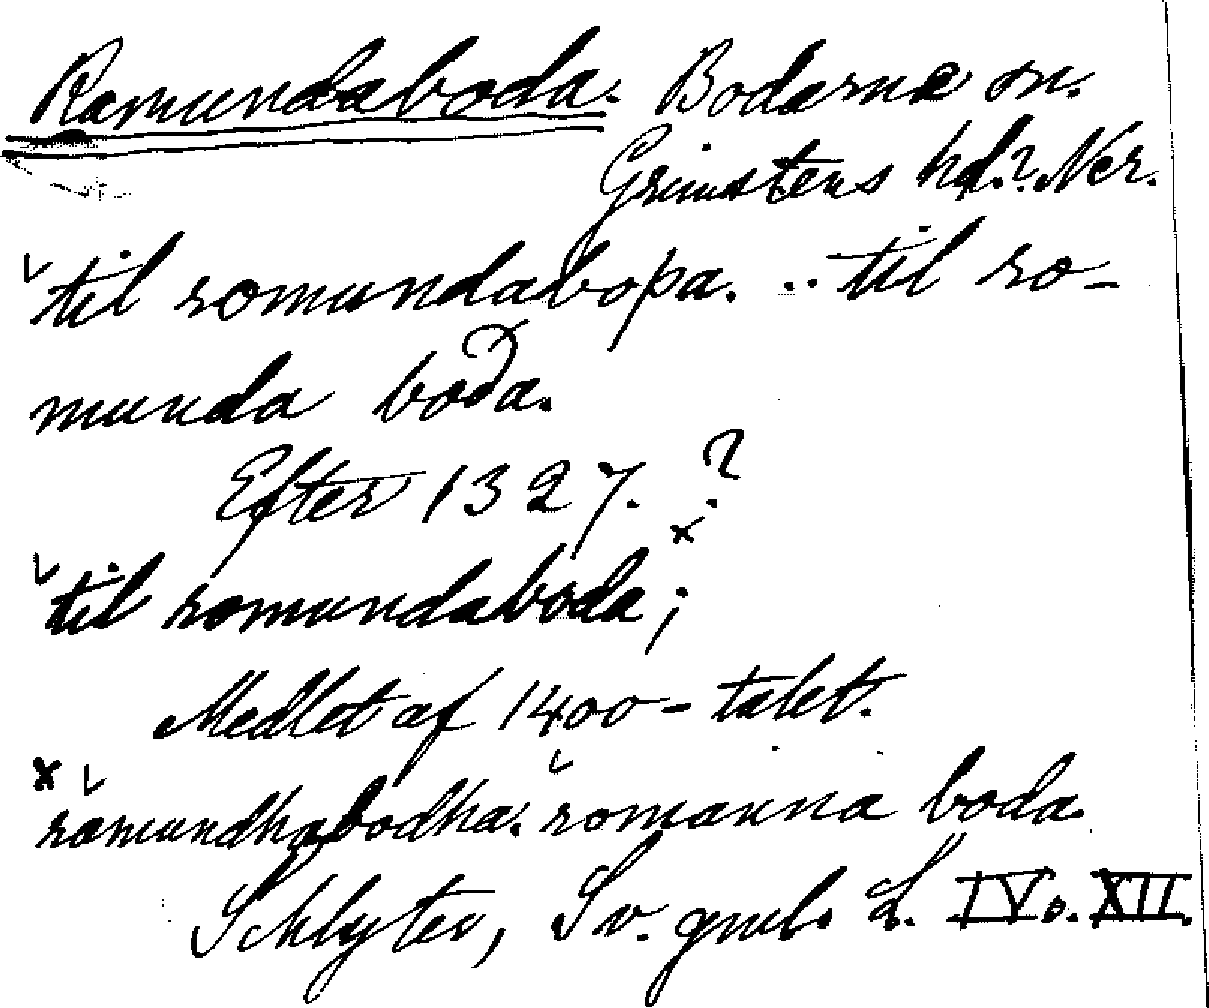 Ramundaboda. Bodarne sn.
Grimstens hd.? Ner.
til romundaboþa. .. til ro-
munda boða.
Efter 1327. ?
til romundaboda;
Medlet af 1400-talet.
x ramundhabodha. romanna boda.
Schlyter, Sv. gml. L. IV o. XII.